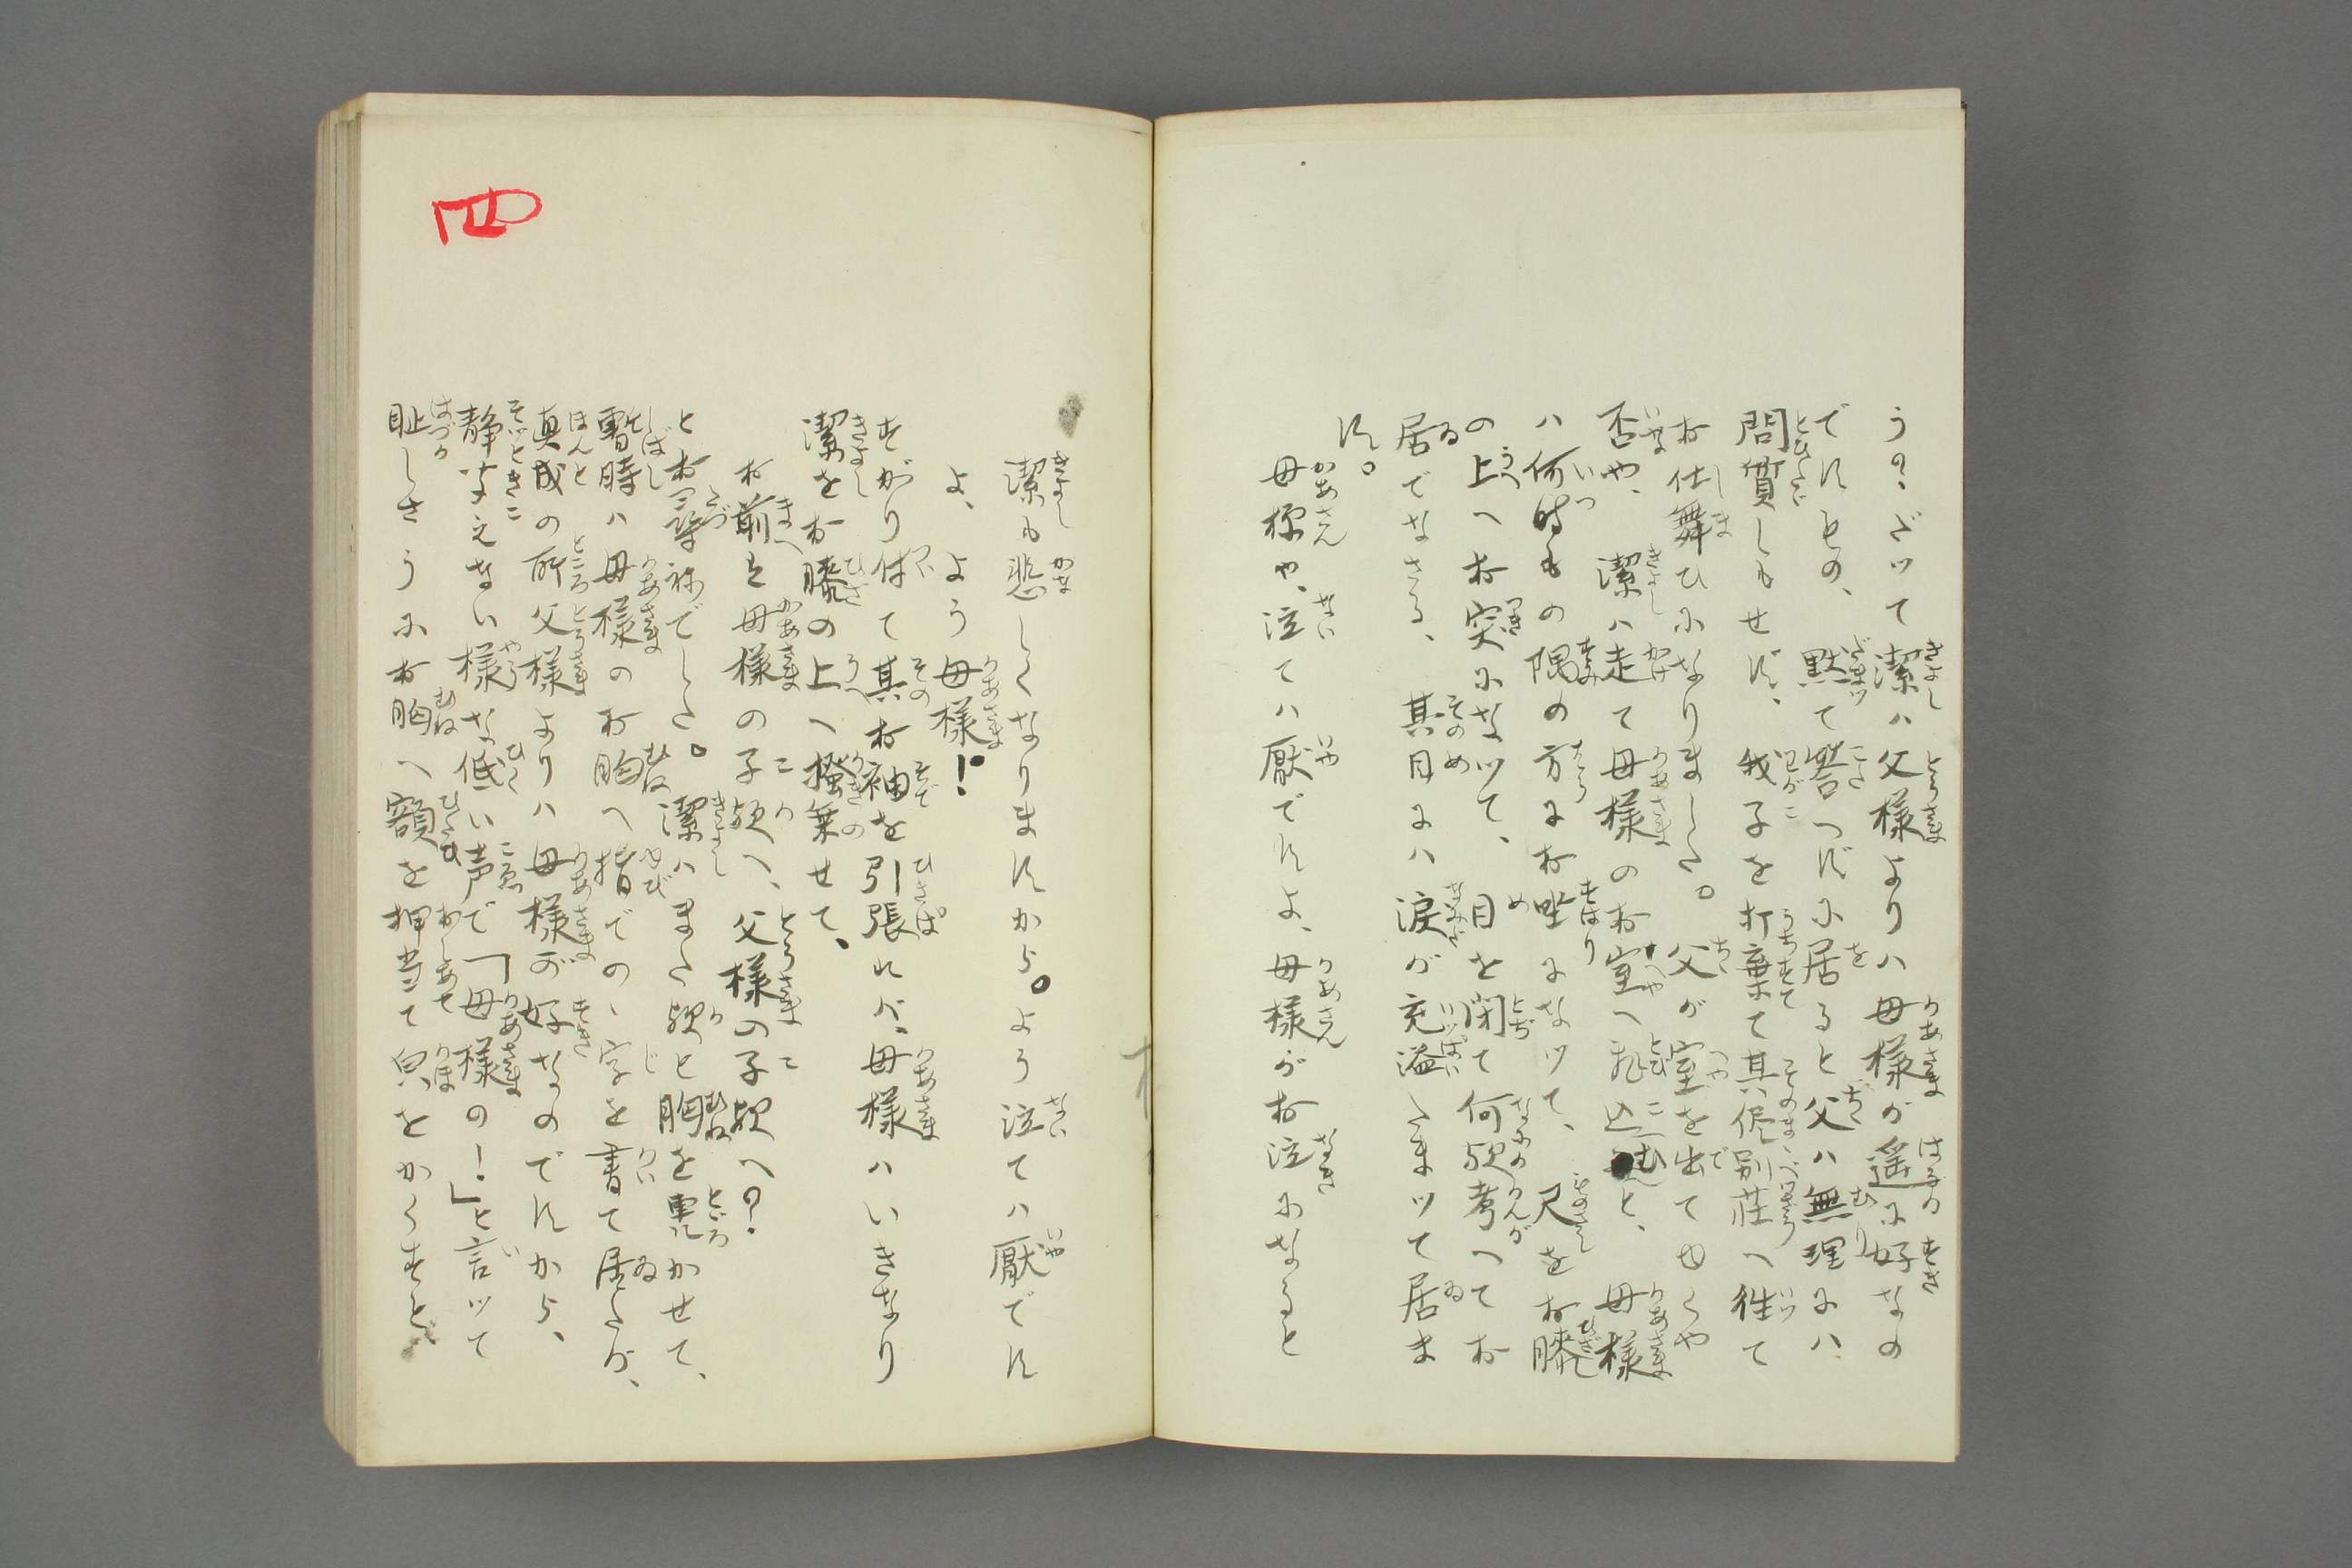 う？だツて潔ハ父様よりハ母様が遥に好なの
でれもの、黙て答へずに居ると父ハ無理にハ
問質しもせず、我子を打棄て其侭別荘へ往て
お仕舞ひになりました。父が室を出てゆくや
否や、潔ハ走て母様のお室へ飛込むと、母様
ハ何時もの隅の方にお坐になツて、尺をお膝
の上へお突になツて、目を閉て何歟考へてお
居でなさる、其目にハ涙が充溢たまツて居ま
す。
母様や、泣てハ厭ですよ、母様がお泣になると
潔も悲しくなりますから。よう泣てハ厭です
よ、よう母様！
すがり付て其お袖を引張れバ、母様ハいきなり
潔をお膝の上へ掻乗せて、
お前ハ母様の子歟へ、父様の子歟へ？
とお尋ねでした。潔ハまた歟と胸を轟かせて、
暫時ハ母様のお胸へ指でのゝ字を書て居たが、
真成の所父様よりハ母様が好なのですから、
静聞えない様な低い声で「母様の！」と言ツて
耻しさうにお胸へ額を押当て㒵をかくすと
四